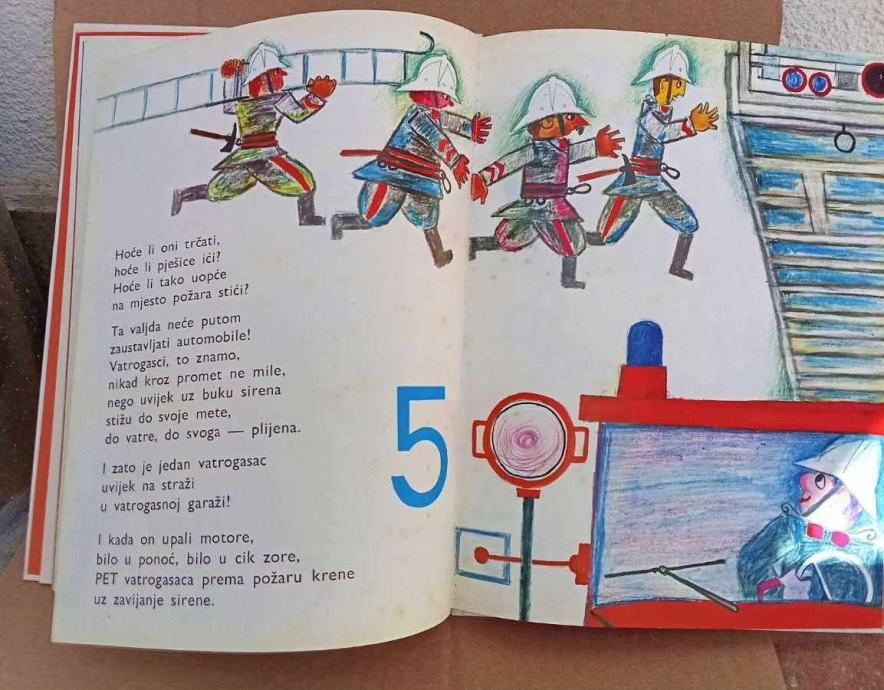 Hoće li oni trčati,
hoće li pješice ići?
Hoće li tako uopće
na mjesto požara stići?
Ta valjda neće putom
zaustavljati automobile!
Vatrogasci, to znamo,
nikad kroz promet ne mile,
nego uvijek uz buku sirena
stižu do svoje mete,
do vatre, do svoga — plijena.
I zato je jedan vatrogasac
uvijek na straži
u vatrogasnoj garaži!
I kada on upali motore,
bilo u ponoć, bilo u cik zore,
PET vatrogasaca prema požaru krene
uz zavijanje sirene.
5